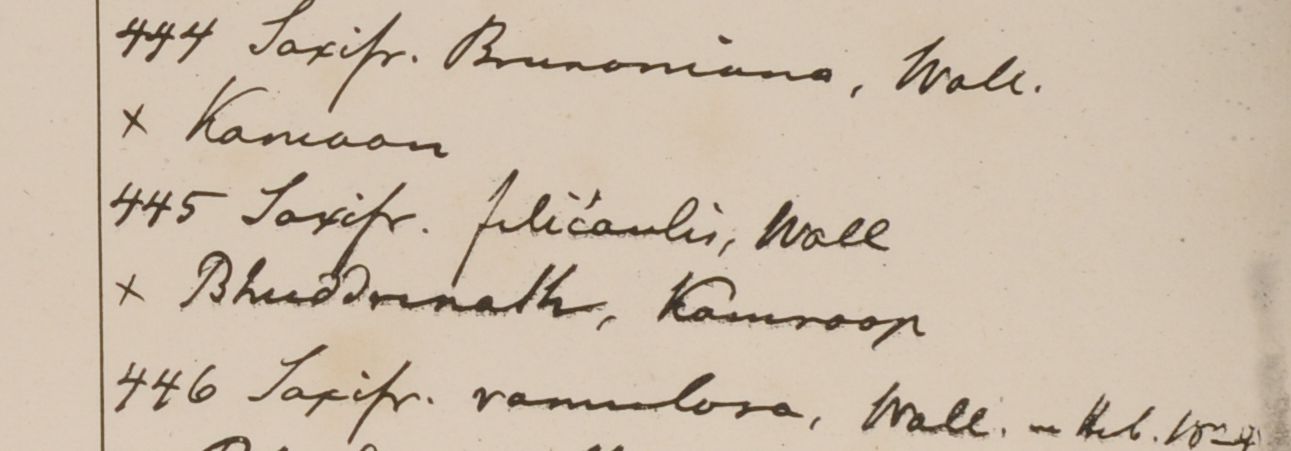 444 Saxifr. Brunoniana, Wall.
x Kamaon
445 Saxifr. filicaulis, Wall
x Bhuddrinath, Kamroop
446 Saxifr. ramulosa, Wall. Hb.